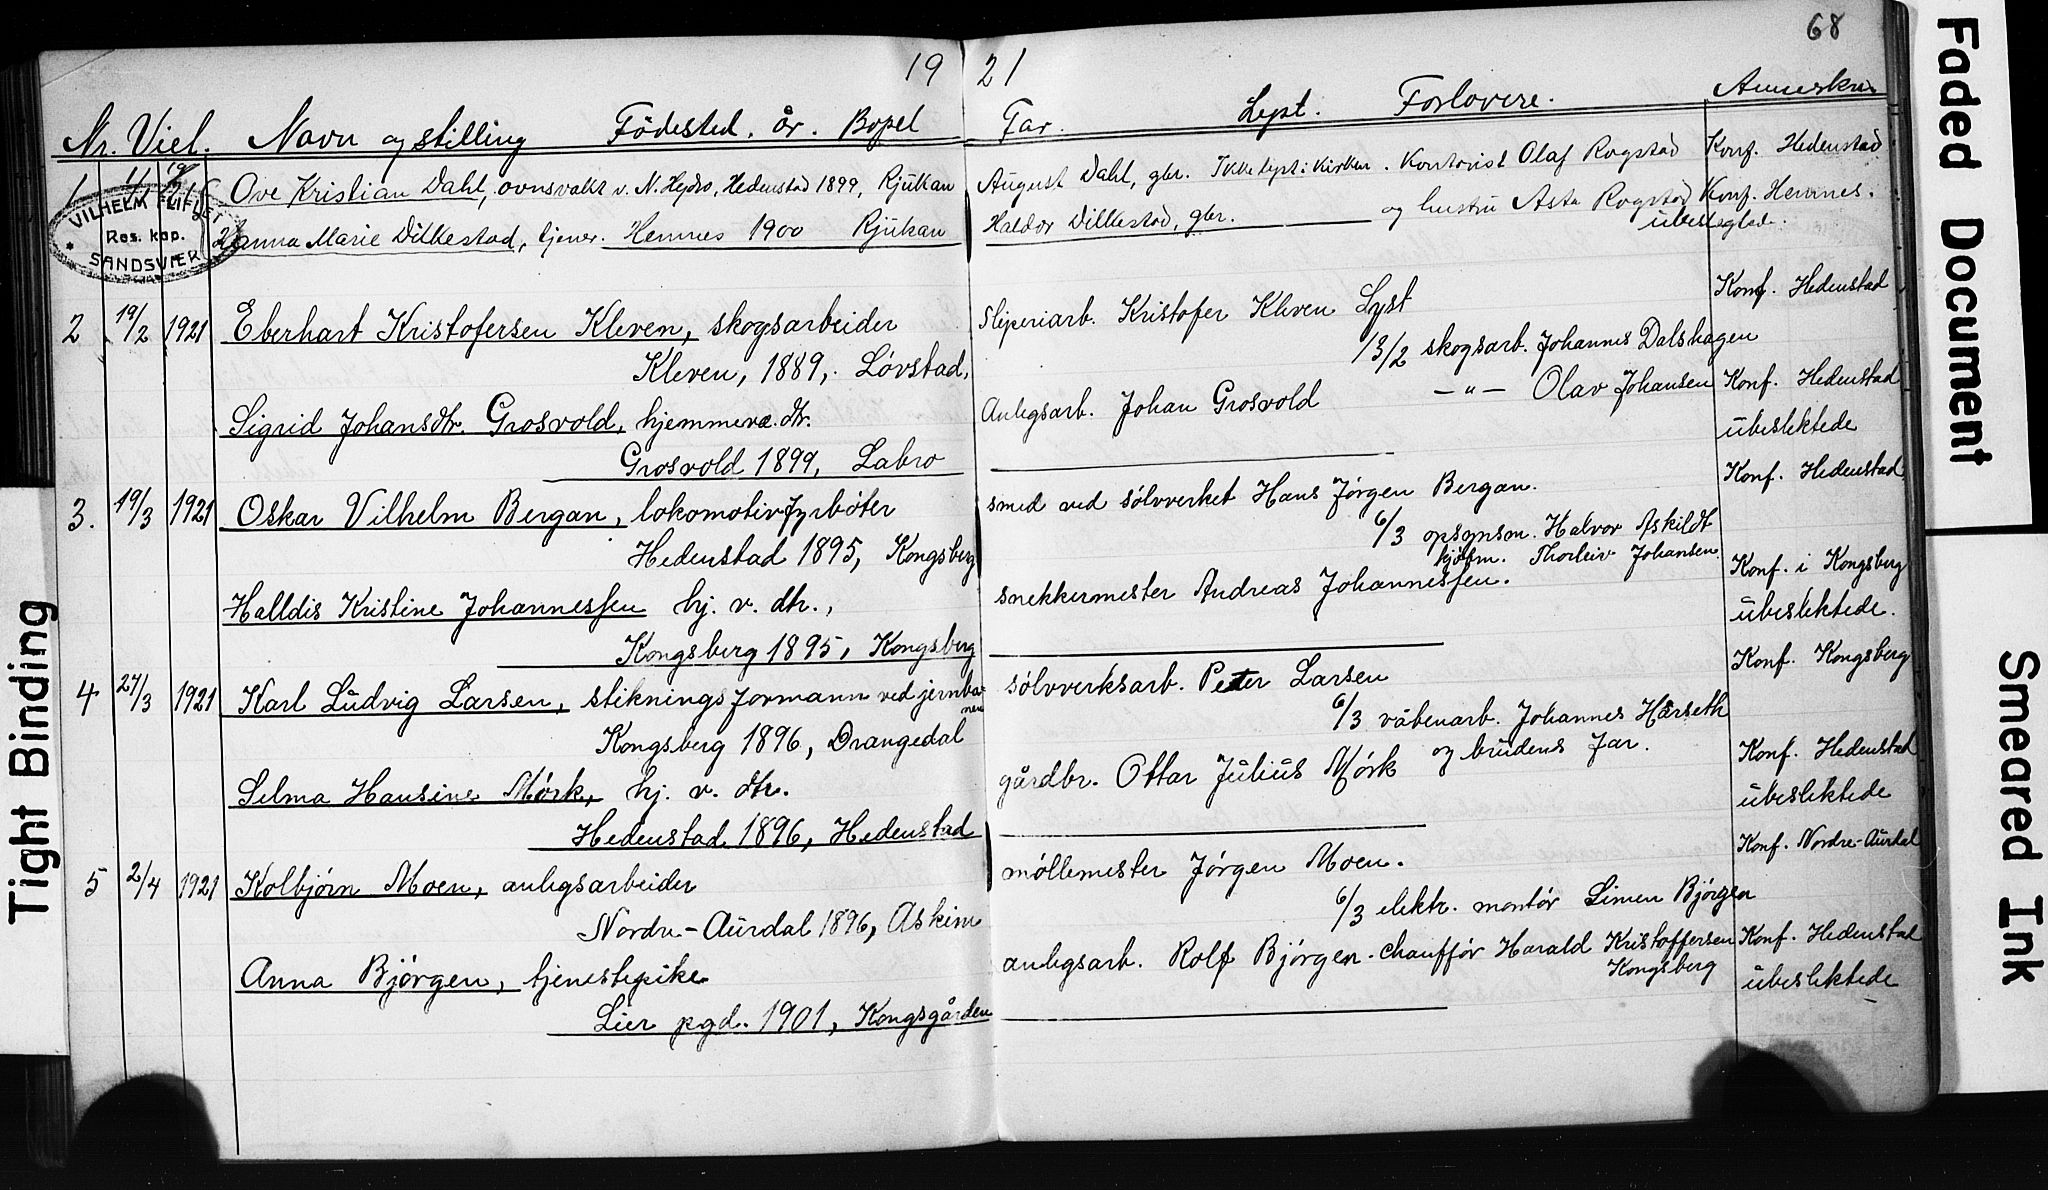 68
19 21
Nr. Viel. Navn og stilling Fødested. år. Bopel Far. Lyst. Forlovere. Anmerkn.
1 Ove Kristian Dahl, ovnsvakt v. N. Hydro, Hedenstad 1899, Rjukan August Dahl, gbr. Ikke lyst i kirken. Kontorist Olaf Rogstad Konf. Hedenstad
Marie Dilkestad, tjener. Hemnes 1900 Rjukan Haldor Dilkestad, gbr. og hustru Asta Rogstad Konf. Hemnes.
ubeslegtede.
VILHELM
Res. kap.
SANDSVÆR
Konf. Hedenstad
2 19/2 1921 Eberhart Kristofersen Kleven, skogsarbeider Sliperiarb. Kristofer Kleven Lyst
Kleven, 1889, Løvstad, 13/2 skogsarb. Johannes Dalshagen
Sigrid Johansdtr. Grosvold, hjemmevæ. dtr. Anlegsarb. Johan Grosvold — " — Olav Johansen Konf. Hedenstad
ubeslektede
Grosvold 1899, Labro
Konf. Hedenstad
3. 19/3 1921 Oskar Vilhelm Bergan, lokomotivfyrbøter smed ved sølvverket Hans Jørgen Bergan.
Hedenstad 1895, Kongsberg 6/3 opsynsm. Halvor Askildt
kjøbm. Thorleiv Johansen.
Halldis Kristine Johannessen hj. v. dtr., snekkermester Andreas Johannessen. Konf. i Kongsberg
ubeslektede.
Kongsberg 1895, Kongsberg
Konf. Kongsberg
4 27/3 1921 Karl Ludvig Larsen, stikningsformann ved jernbanen sølvverksarb. Peter Larsen
Kongsberg 1896, Drangedal 6/3 våbenarb. Johannes Harseth
Selma Hansine Mørk, hj. v. dtr. gårdbr. Ottar Julius Mørk og brudens far. Konf. Hedenstad
ubeslektede
Hedenstad 1896, Hedenstad
Konf. Nordre-Aurdal
5 2/4 1921 Kolbjørn Moen, anlegsarbeider møllemester Jørgen Moen.
Nordre-Aurdal 1896, Askim 6/3 elektr. montør Simen Bjørgen
Anna Bjørgen, tjenestepike anlegsarb. Rolf Bjørgen. chauffør Harald Kristoffersen Konf. Hedenstad
Kongsberg ubeslektede
Lier pgd. 1901, Kongsgården
Tight Binding
Faded Document
Smeared Ink